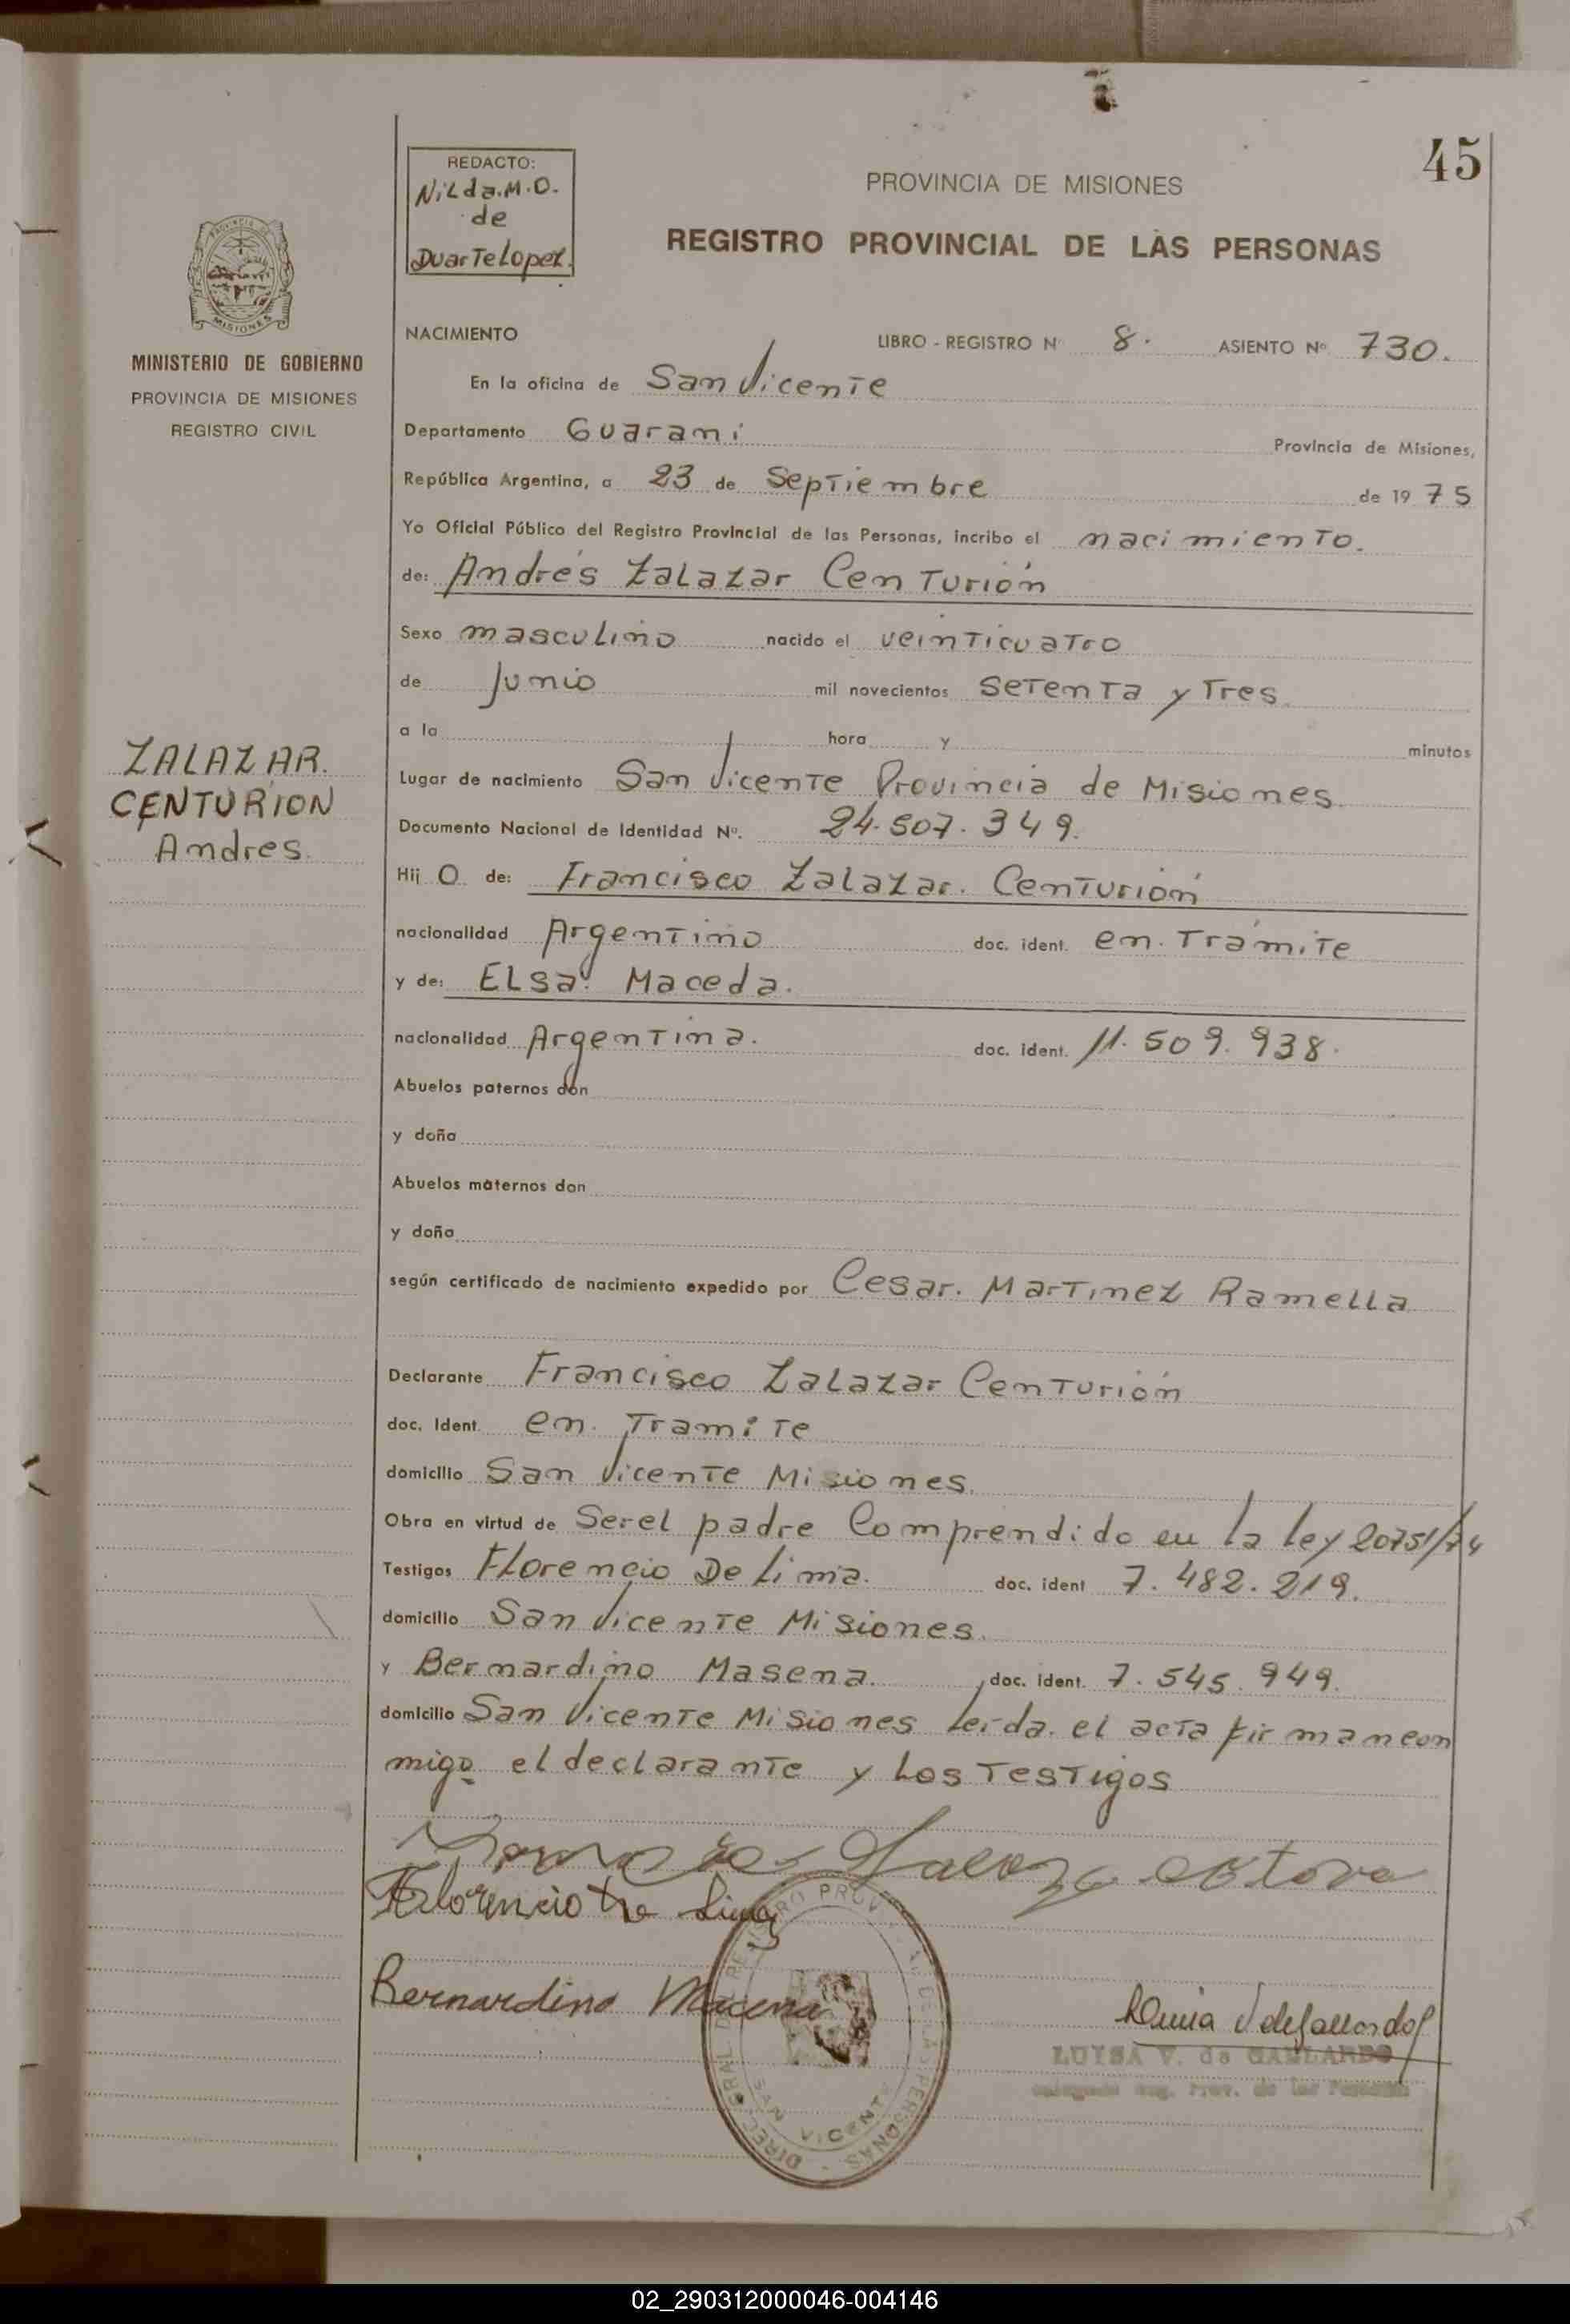 45
REDACTO:
Nilda.M.O.
de
Duarte Lopez.
PROVINCIA DE MISIONES
REGISTRO PROVINCIAL DE LAS PERSONAS
MISIONES
MINISTERIO DE GOBIERNO
PROVINCIA DE MISIONES
REGISTRO CIVIL
NACIMIENTO
LIBRO - REGISTRO N 8. ASIENTO Nº 730.
En la oficina de San Vicente
Departamento Guarani Provincia de Misiones,
República Argentina, a 23 de Septiembre de 19 75
Yo Oficial Público del Registro Provincial de las Personas, incribo el nacimiento.
de: Andrés Zalazar Centurión
Sexo masculino nacido el veinticuatro
de Junio mil novecientos setenta y Tres.
a la hora y minutos
ZALAZAR.
CENTURION
Andres.
Lugar de nacimiento San Vicente Provincia de Misiones.
Documento Nacional de Identidad Nº. 24.507.349.
Hij O de: Francisco Zalazar. Centurión
nacionalidad Argentino doc. ident. en. Trámite
y de: Elsa. Maceda.
nacionalidad Argentina. doc. ident. 11.509.938.
Abuelos paternos don
y doña
Abuelos maternos don
y doña
según certificado de nacimiento expedido por Cesar. Martinez Ramella
Declarante Francisco Zalazar Centurión
doc. Ident. en. Tramite
domicilio San Vicente Misiones.
Obra en virtud de Ser el padre Comprendido en la ley 20751/74
Testigos Florencio De Lima. doc. ident 7.482.219.
domicilio San Vicente Misiones.
y Bernardino Masena. doc. ident. 7.545.949.
domicilio San Vicente Misiones Leida. el acta firman con
migo el declarante y Los Testigos
Florencio De Lima
Bernardino Macena
LUISA V. de GALLARDO
SAN VICENTE
02_290312000046-004146